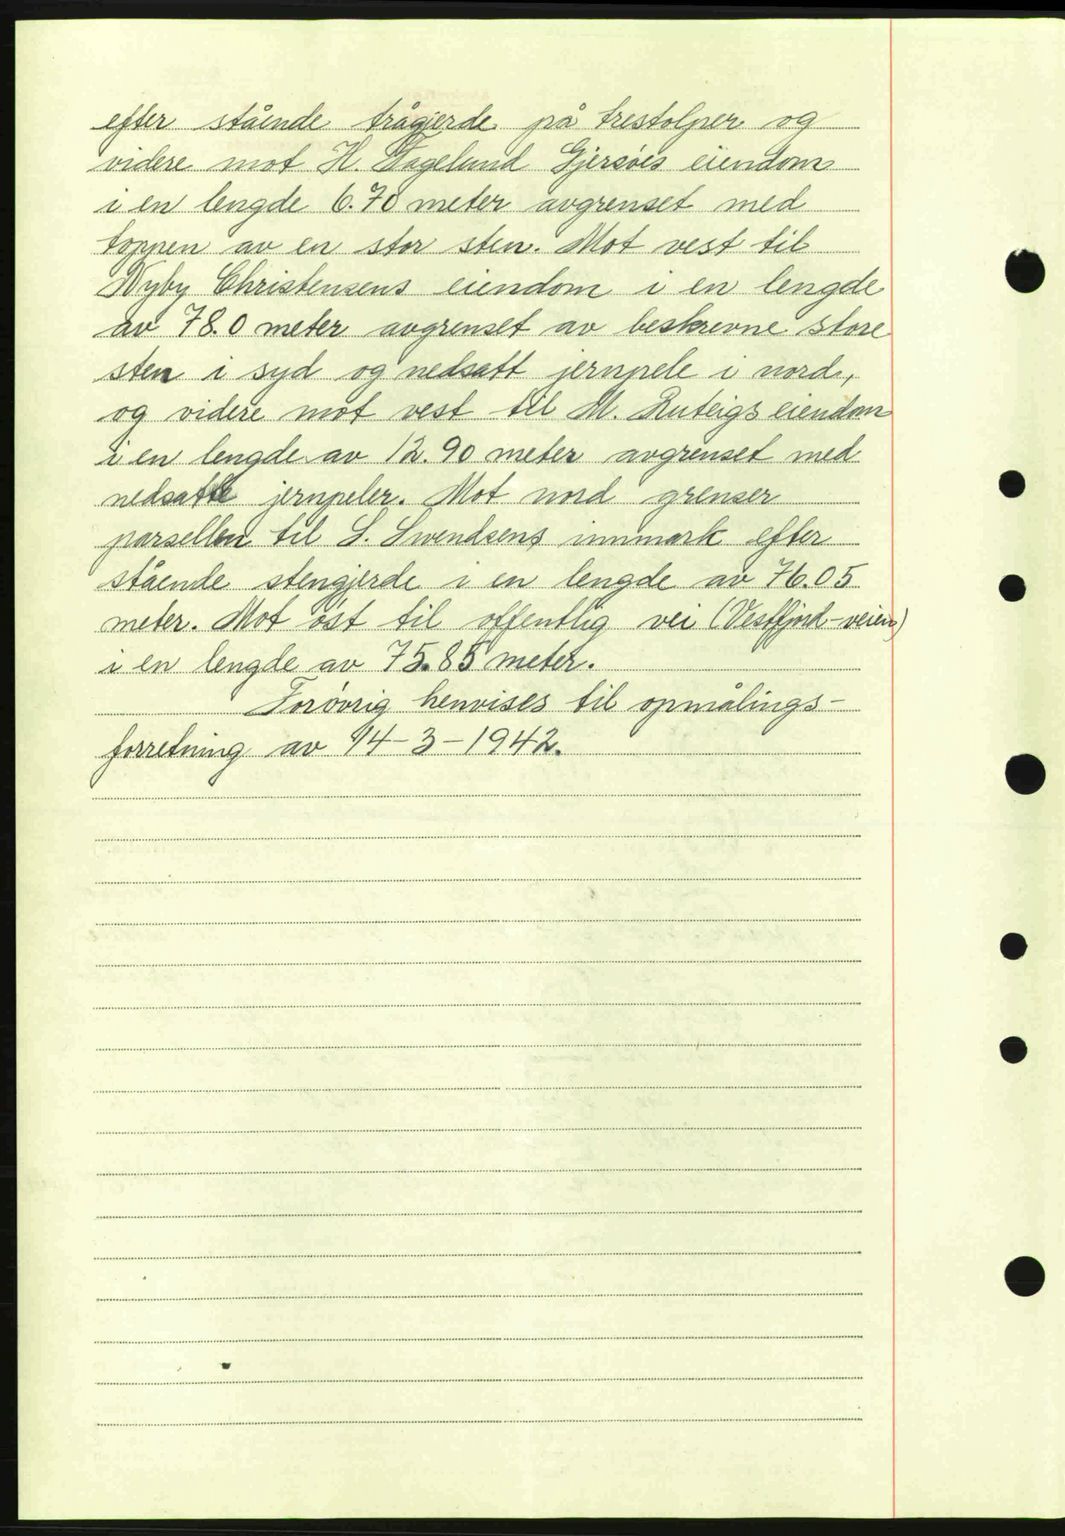 efter stående trågjerde på trestolper og
videre mot H. Fagelund Gjersöes eiendom
i en lengde 6.70 meter avgrenset med
toppen av en stor sten. Mot vest til
Nyby Christensens eiendom i en lengde
av 78.0 meter avgrenset av beskrevne store
sten i syd og nedsatt jernpele i nord,
og videre mot vest til M. Ruteigs eiendom
i en lengde av 12.90 meter avgrenset med
nedsatte jernpeler. Mot nord grenser
parsellen til S. Svendsens innmark efter
stående stengjerde i en lengde av 76.05
meter. Mot öst til offentlig vei (Vestfjord-veien)
i en lengde av 75.85 meter.
Forövrig henvises til opmålings-
forretning av 14-3-1942.